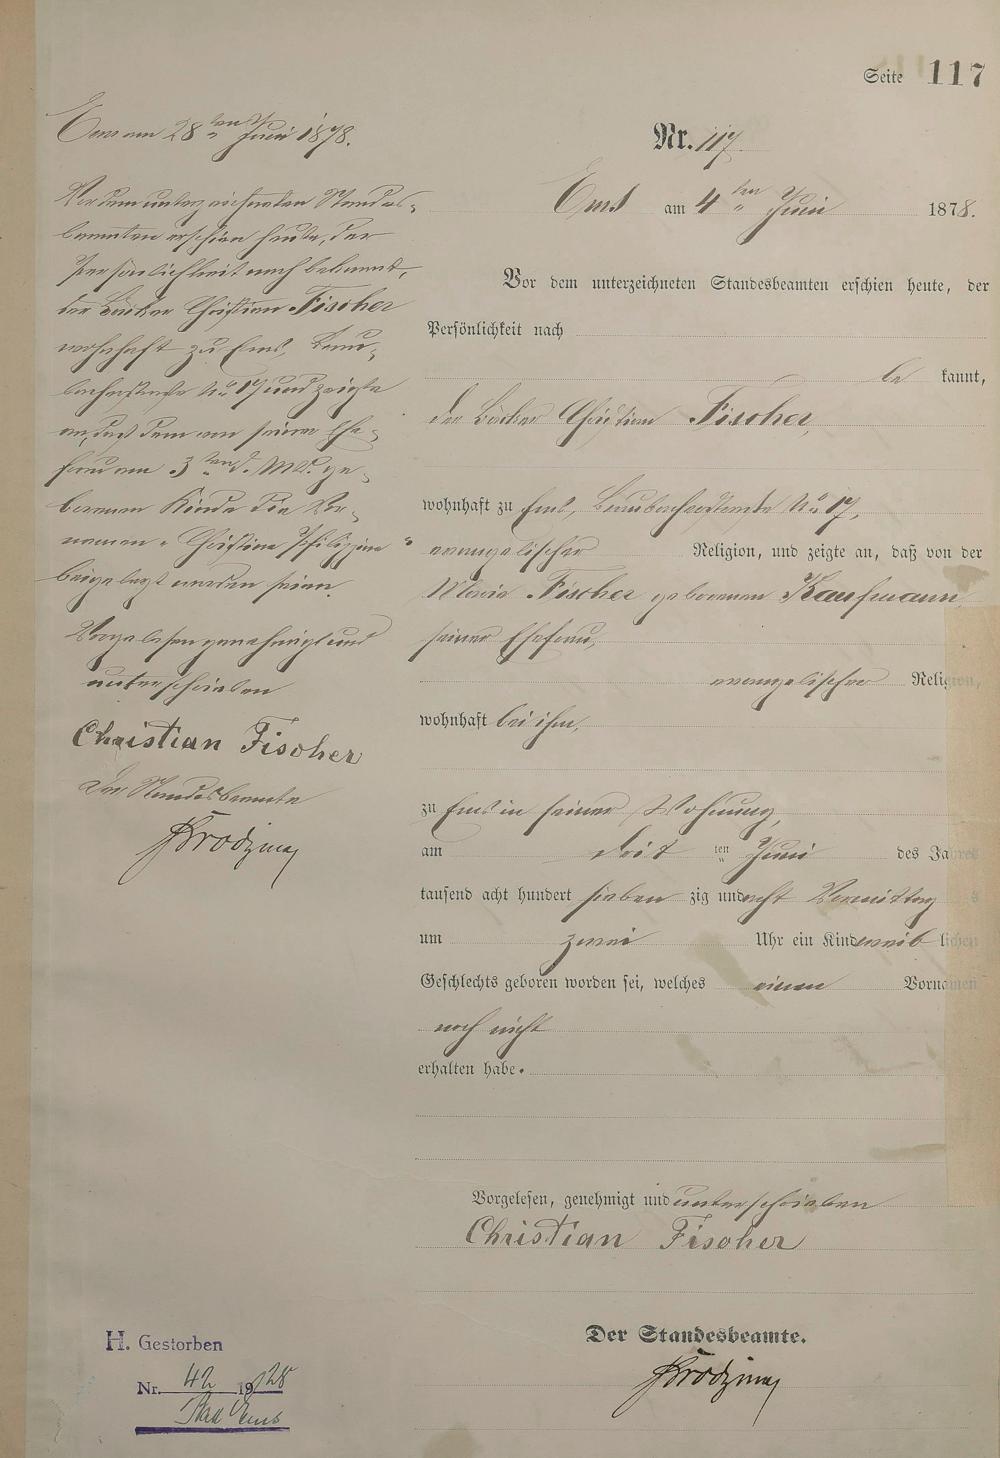 Seite 117
Nr. 117.
Ems am 4ten Juni 1878.
Vor dem unterzeichneten Standesbeamten erschien heute, der
Persönlichkeit nach
be kannt,
der Bäcker Christian Fischer,
wohnhaft zu Ems, Braubacherstraße No 17,
evangelischer Religion, und zeigte an, daß von der
Maria Fischer geborenen Kaufmann
seiner Ehefrau,
evangelischer Religion,
wohnhaft bei ihm,
zu Ems in seiner Wohnung,
am drit ten Juni des Jahres
tausend acht hundert sieben zig und acht Vormittag s
um zwei Uhr ein Kind weib lichen
Geschlechts geboren worden sei, welches einen Vornamen
noch nicht
erhalten habe.
Vorgelesen, genehmigt und unterschrieben
Christian Fischer
Der Standesbeamte.
Ems am 28ten Juni 1878.
Vor dem unterzeichneten Standes-
beamten erschien heute, der
Persönlichkeit nach bekannt,
der Bäcker Christian Fischer
wohnhaft zu Ems, Brau-
bacherstraße No 17 und zeigte
an, daß dem von seiner Ehe-
frau am 3ten d. Mts. ge-
borenen Kinde die Vor-
namen "Christine Philippine"
beigelegt worden seien.
Vorgelesen genehmigt und
unterschrieben
Christian Fischer
Der Standesbeamte
H. Gestorben
Nr. 42 1928
Bad Ems